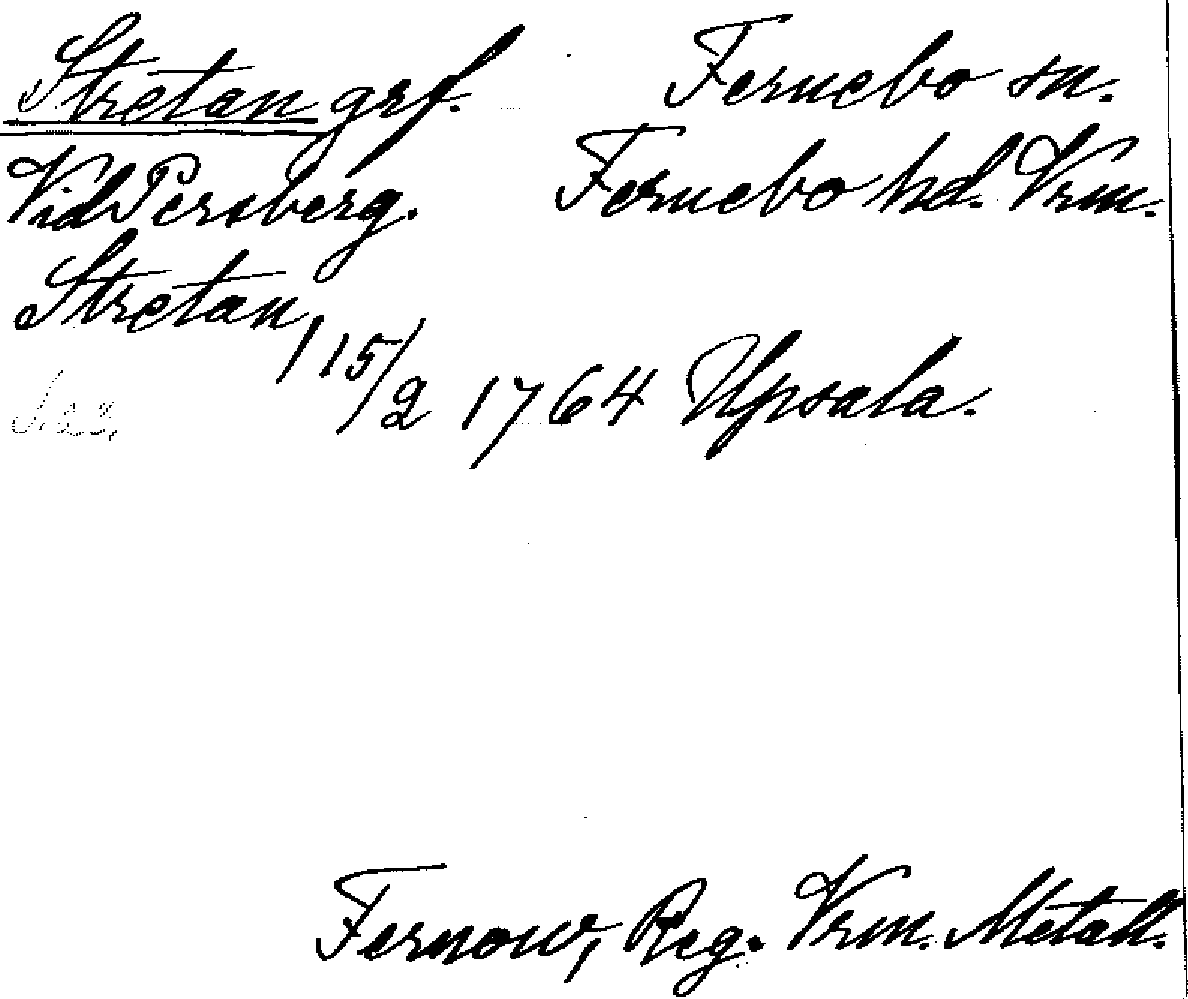 Stretan grf. Fernebo sn.
Vid Persberg. Fernebo hd. Vrm.
Stretan, 15/2 1764 Upsala.
Fernow, Reg. Vrm. Metall.